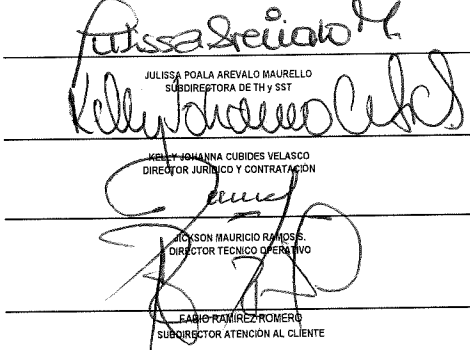 Julissa Arevalo M.
JULISSA POALA AREVALO MAURELLO
SUBDIRECTORA DE TH y SST
Kelly Johanna
KELLY JOHANNA CUBIDES VELASCO
DIRECTOR JURIDICO Y CONTRATACIÓN
JICKSON MAURICIO RAMOS S.
DIRECTOR TECNICO OPERATIVO
FABIO RAMIREZ ROMERO
SUBDIRECTOR ATENCIÓN AL CLIENTE